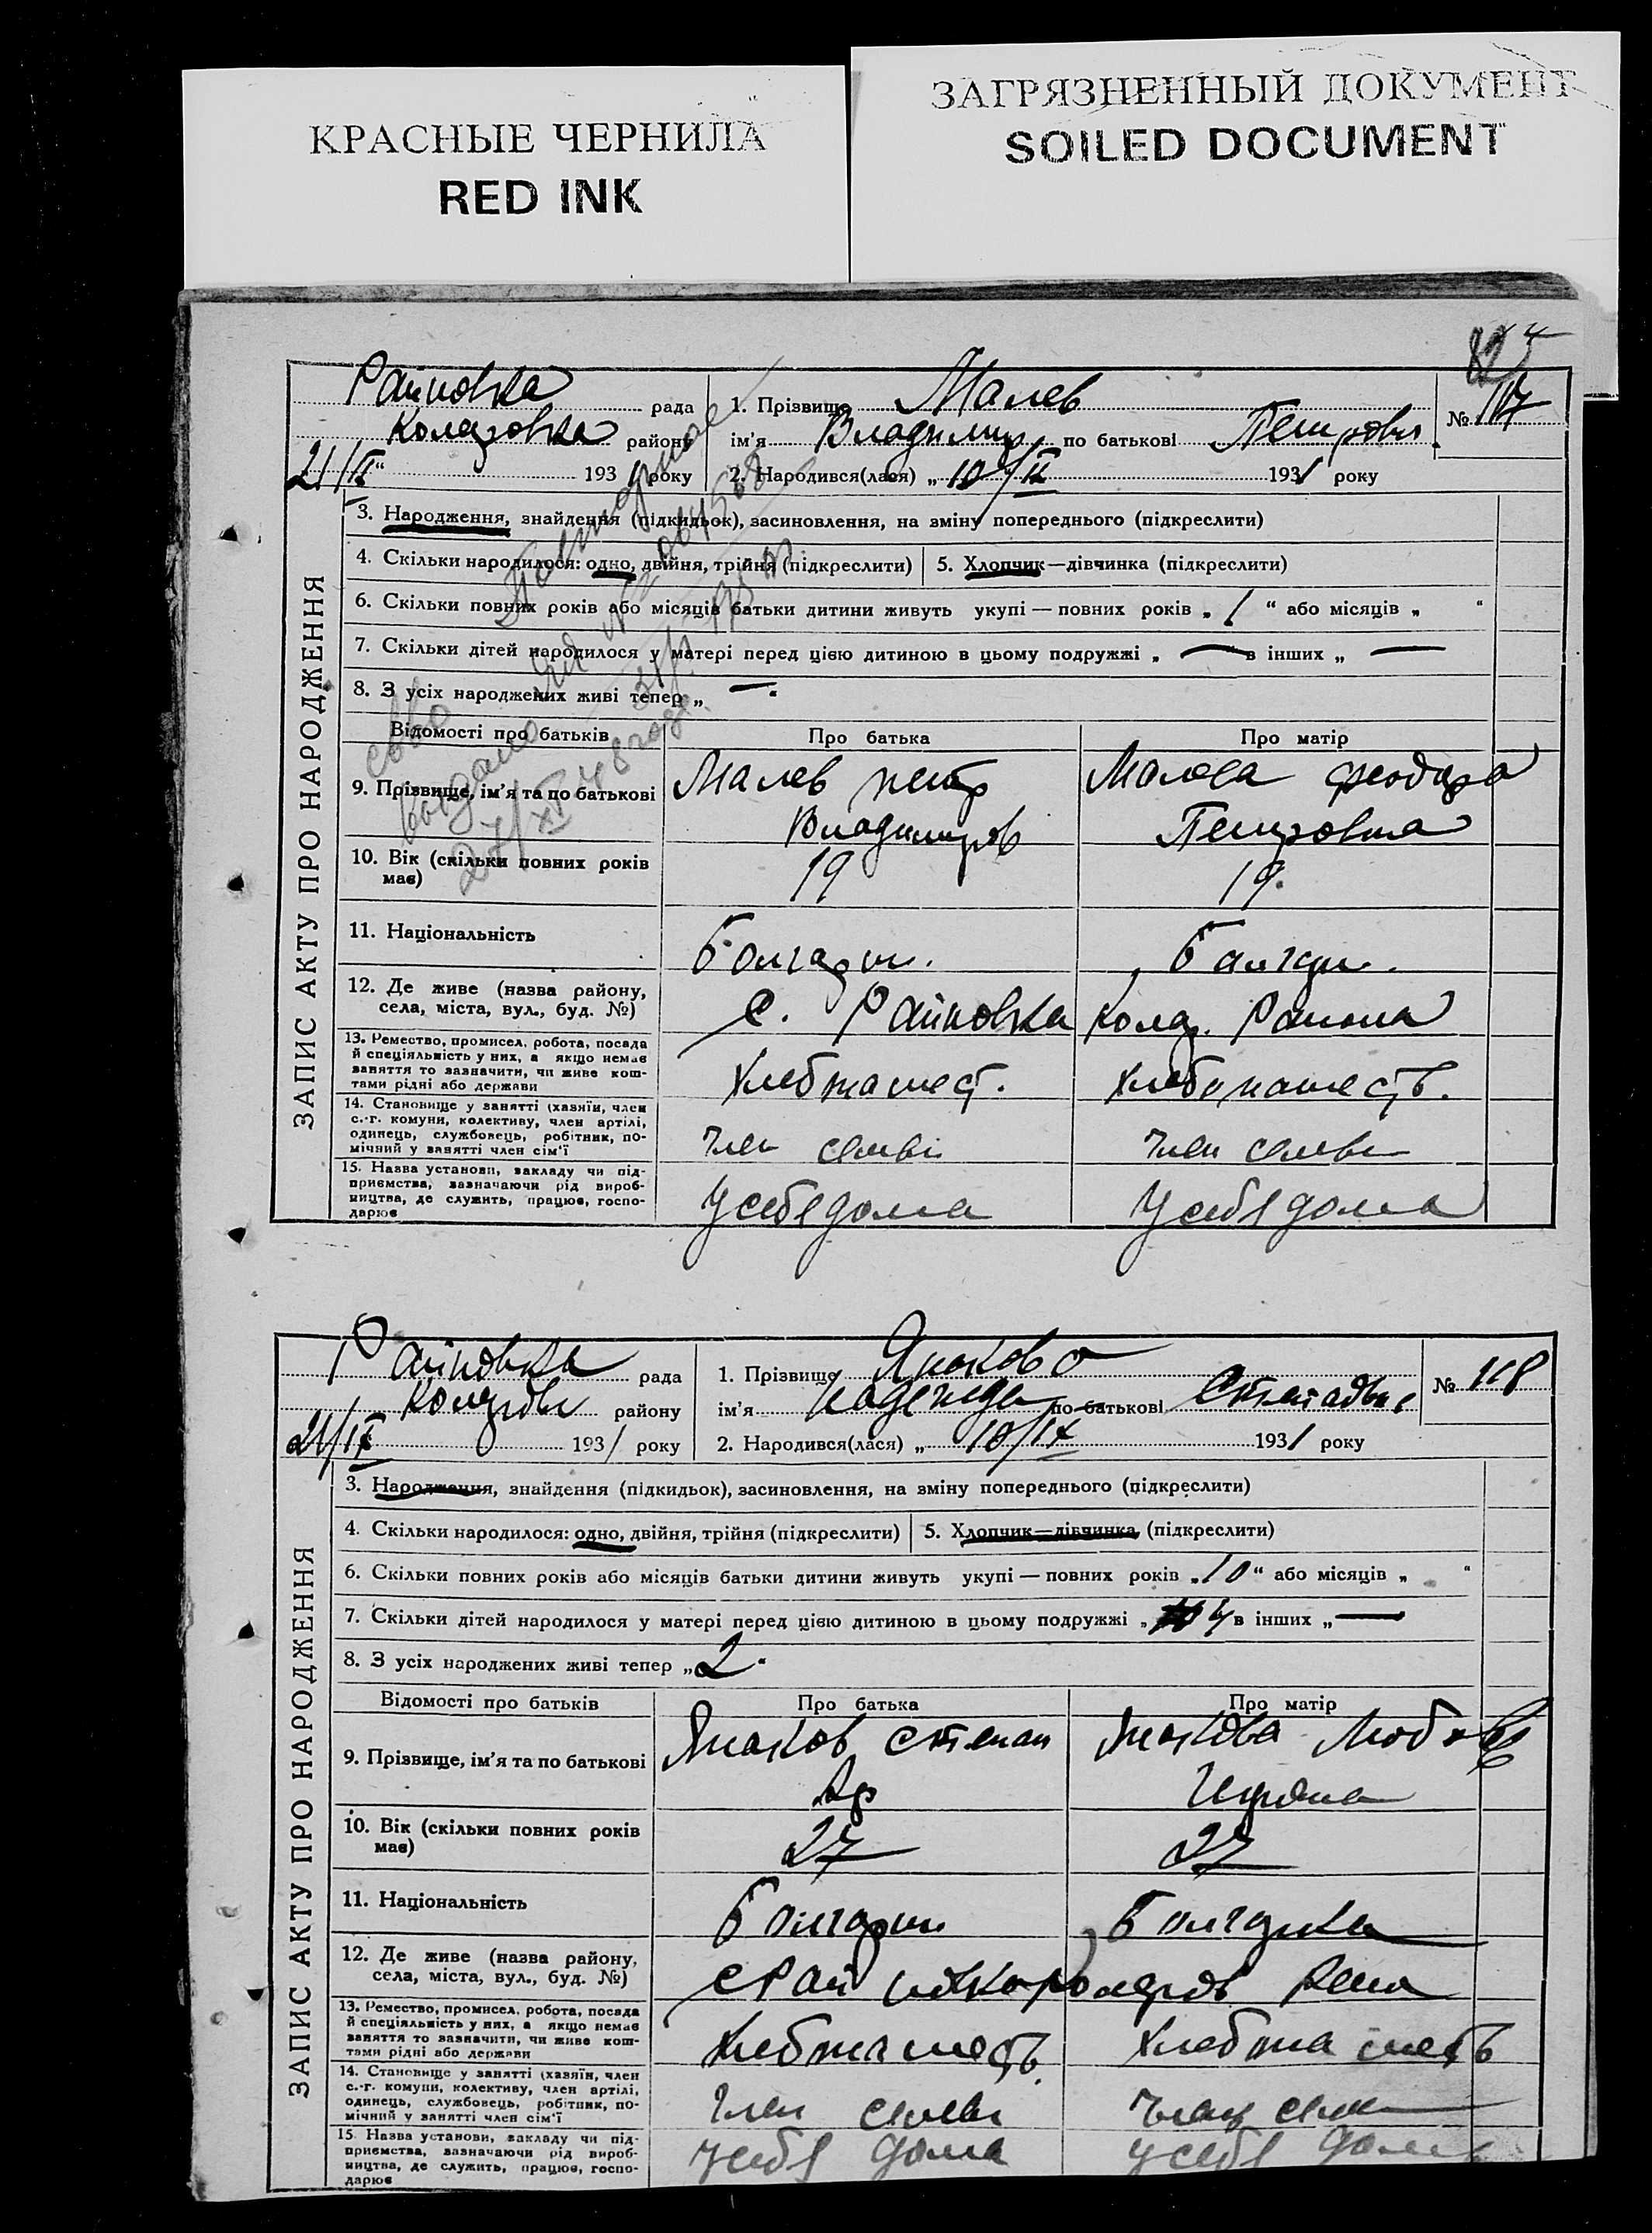 КРАСНЫЕ ЧЕРНИЛА
RED INK
ЗАГРЯЗНЕННЫЙ ДОКУМЕНТ
SOILED DOCUMENT
82
ЗАПИС АКТУ ПРО НАРОДЖЕННЯ
Райновка рада
району
21/IX 1931 року
1. Прізвище Малев
ім'я Владимир по батькові Петрович
№ 117
2. Народився(лася) „ 10/IX 1931 року
3. Народження, знайдення (підкидьок), засиновлення, на зміну попереднього (підкреслити)
4. Скільки народилося: одно, двійня, трійня (підкреслити) 5. Хлопчик—дівчинка (підкреслити)
6. Скільки повних років або місяців батьки дитини живуть укупі — повних років „ 1 “ або місяців „ “
7. Скільки дітей народилося у матері перед цією дитиною в цьому подружжі „ — в інших „ —
8. З усіх народжених живі тепер „ —
Відомості про батьків Про батька Про матір
9. Прізвище, ім'я та по батькові Малев петр Малева
Владимиров Петровна
10. Вік (скільки повних років має) 19 19.
11. Національність Болгарин. Болгар.
12. Де живе (назва району, села, міста, вул., буд. №) с. Райновка Колар. Района
13. Ремество, промисел, робота, посада
й спеціяльність у них, а якщо немає
заняття то зазначити, чи живе кош-
тами рідні або держави
Хлебпашест. Хлебопашеств.
14. Становище у занятті (хазяїн, член
с.-г. комуни, колективу, член артілі,
одинець, службовець, робітник, по-
мічний у занятті член сім'ї
член семьи член семьи
15. Назва установи, закладу чи під-
приємства, зазначаючи рід вироб-
ництва, де служить, працює, госпо-
дарює
У себе дома У себя дома
выдано
Повторное
ЗАПИС АКТУ ПРО НАРОДЖЕННЯ
Райновка рада
району
21/IX 1931 року
1. Прізвище
ім'я Надежда по батькові
№ 118
2. Народився(лася) „ 10/IX 1931 року
3. Народження, знайдення (підкидьок), засиновлення, на зміну попереднього (підкреслити)
4. Скільки народилося: одно, двійня, трійня (підкреслити) 5. Хлопчик—дівчинка (підкреслити)
6. Скільки повних років або місяців батьки дитини живуть укупі — повних років „ 10 “ або місяців „ “
7. Скільки дітей народилося у матері перед цією дитиною в цьому подружжі „ 4 в інших „ —
8. З усіх народжених живі тепер „ 2 “
Відомості про батьків Про батька Про матір
9. Прізвище, ім'я та по батькові степан Любовь
10. Вік (скільки повних років має) 27 27
11. Національність Болгарин Болгарка
12. Де живе (назва району, села, міста, вул., буд. №)
13. Ремество, промисел, робота, посада
й спеціяльність у них, а якщо немає
заняття то зазначити, чи живе кош-
тами рідні або держави
Хлебпашеств. Хлебпашеств
14. Становище у занятті (хазяїн, член
с.-г. комуни, колективу, член артілі,
одинець, службовець, робітник, по-
мічний у занятті член сім'ї
член семьи член семьи
15. Назва установи, закладу чи під-
приємства, зазначаючи рід вироб-
ництва, де служить, працює, госпо-
дарює
У себя дома у себя дома